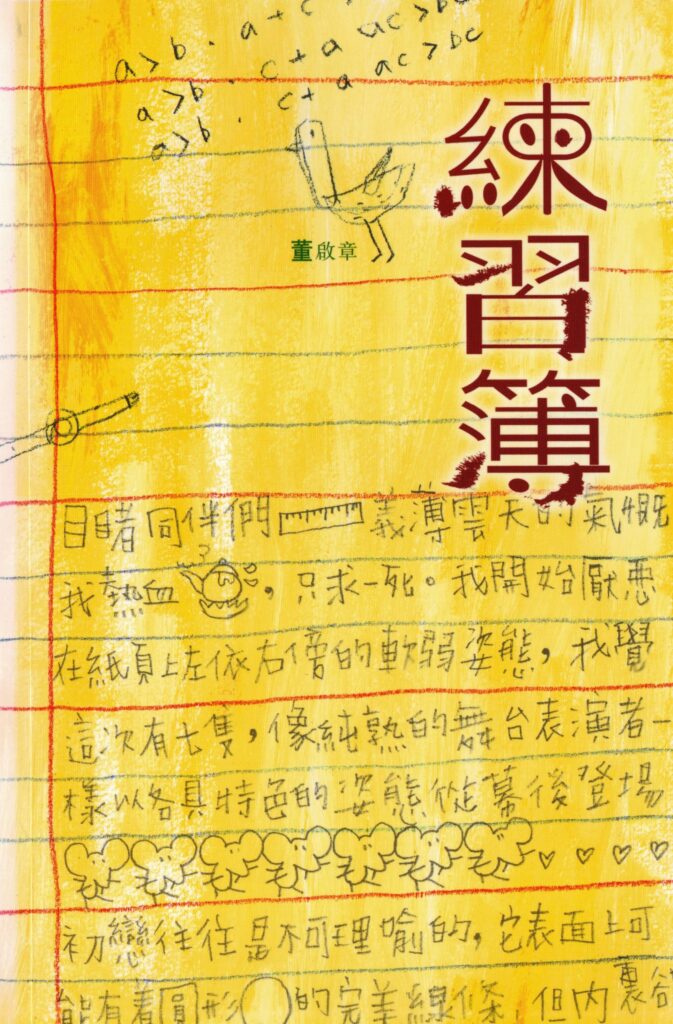 a>b . a+c
a>b . c+a ac>bc
a>b . c+a ac>bc
練習簿
董啟章
目睹同伴們義薄雲天的氣慨
我熱血，只求一死。我開始厭惡
在紙頁上左依右傍的軟弱姿態，我覺
這次有七隻，像純熟的舞台表演者一
樣以各具特色的姿態從幕後登場
初戀往往是不可理喻的，它表面上可
能有着圓形的完美線條，但內裏卻